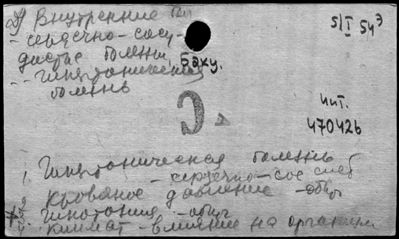 а) Внутренние
- сердечно-сосу-
дистые болезни, Баку.
- Гипертоническая
болезнь
5/I 54э
С
чит.
470426
Гипертоническая болезнь
- сердечно-сос
Кровяное давление - общ
Гипотония - общ
климат - влияние на организм